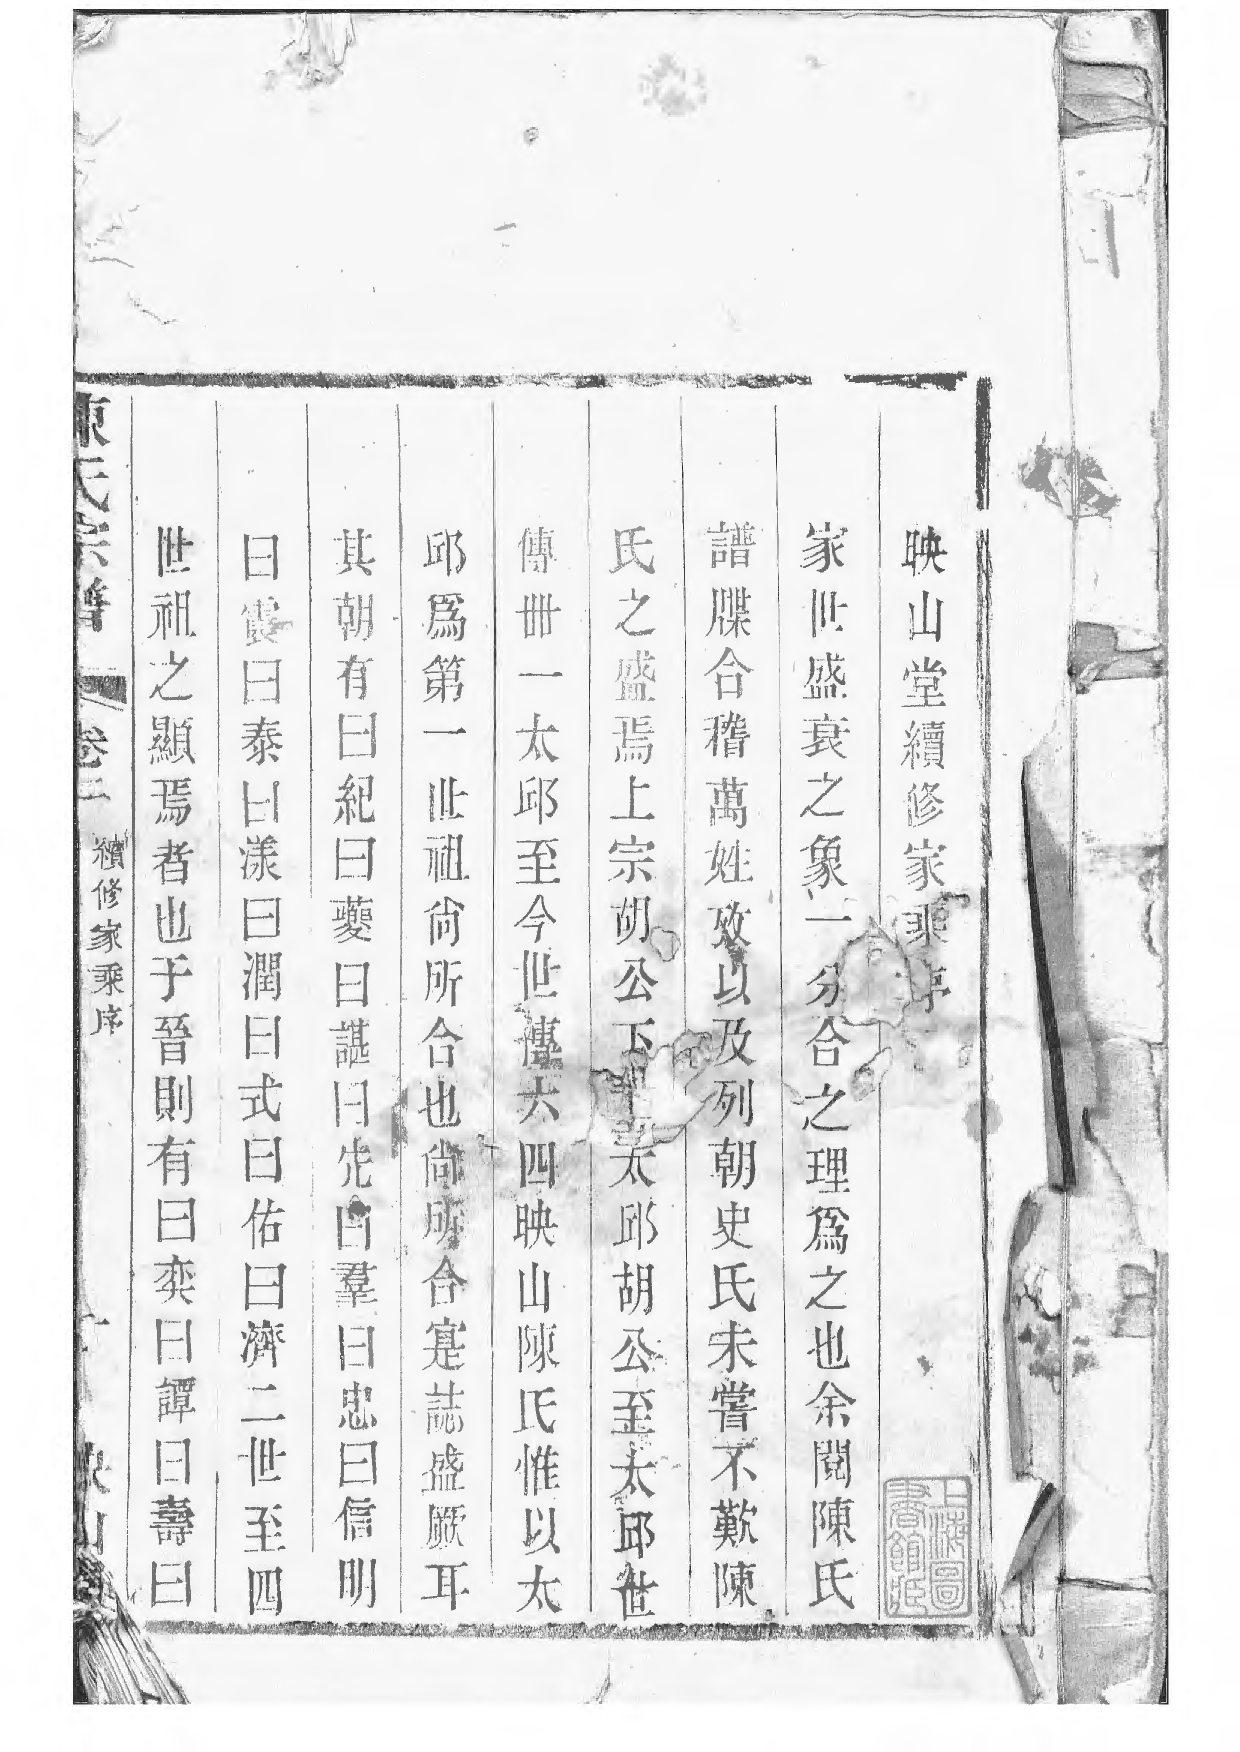 映山堂續修家乘序
家世盛衰之象一分合之理爲之也余閱陳氏
譜牒合稽萬姓攷以及列朝史氏未嘗不歎陳
氏之盛焉上宗胡公下太邱胡公至太邱世
傳卌一太邱至今世傳六四映山陳氏惟以太
邱爲第一世祖尙所合也尙所合寔誌盛厥耳
其朝有曰紀曰夔曰諶曰先曰羣曰忠曰信明
曰震曰泰曰漾曰潤曰式曰佑曰濟二世至四
世祖之顯焉者也于晉則有曰奕曰譚曰壽曰
陳氏宗譜 卷二 續修家乘序 映山堂
上海圖書館藏